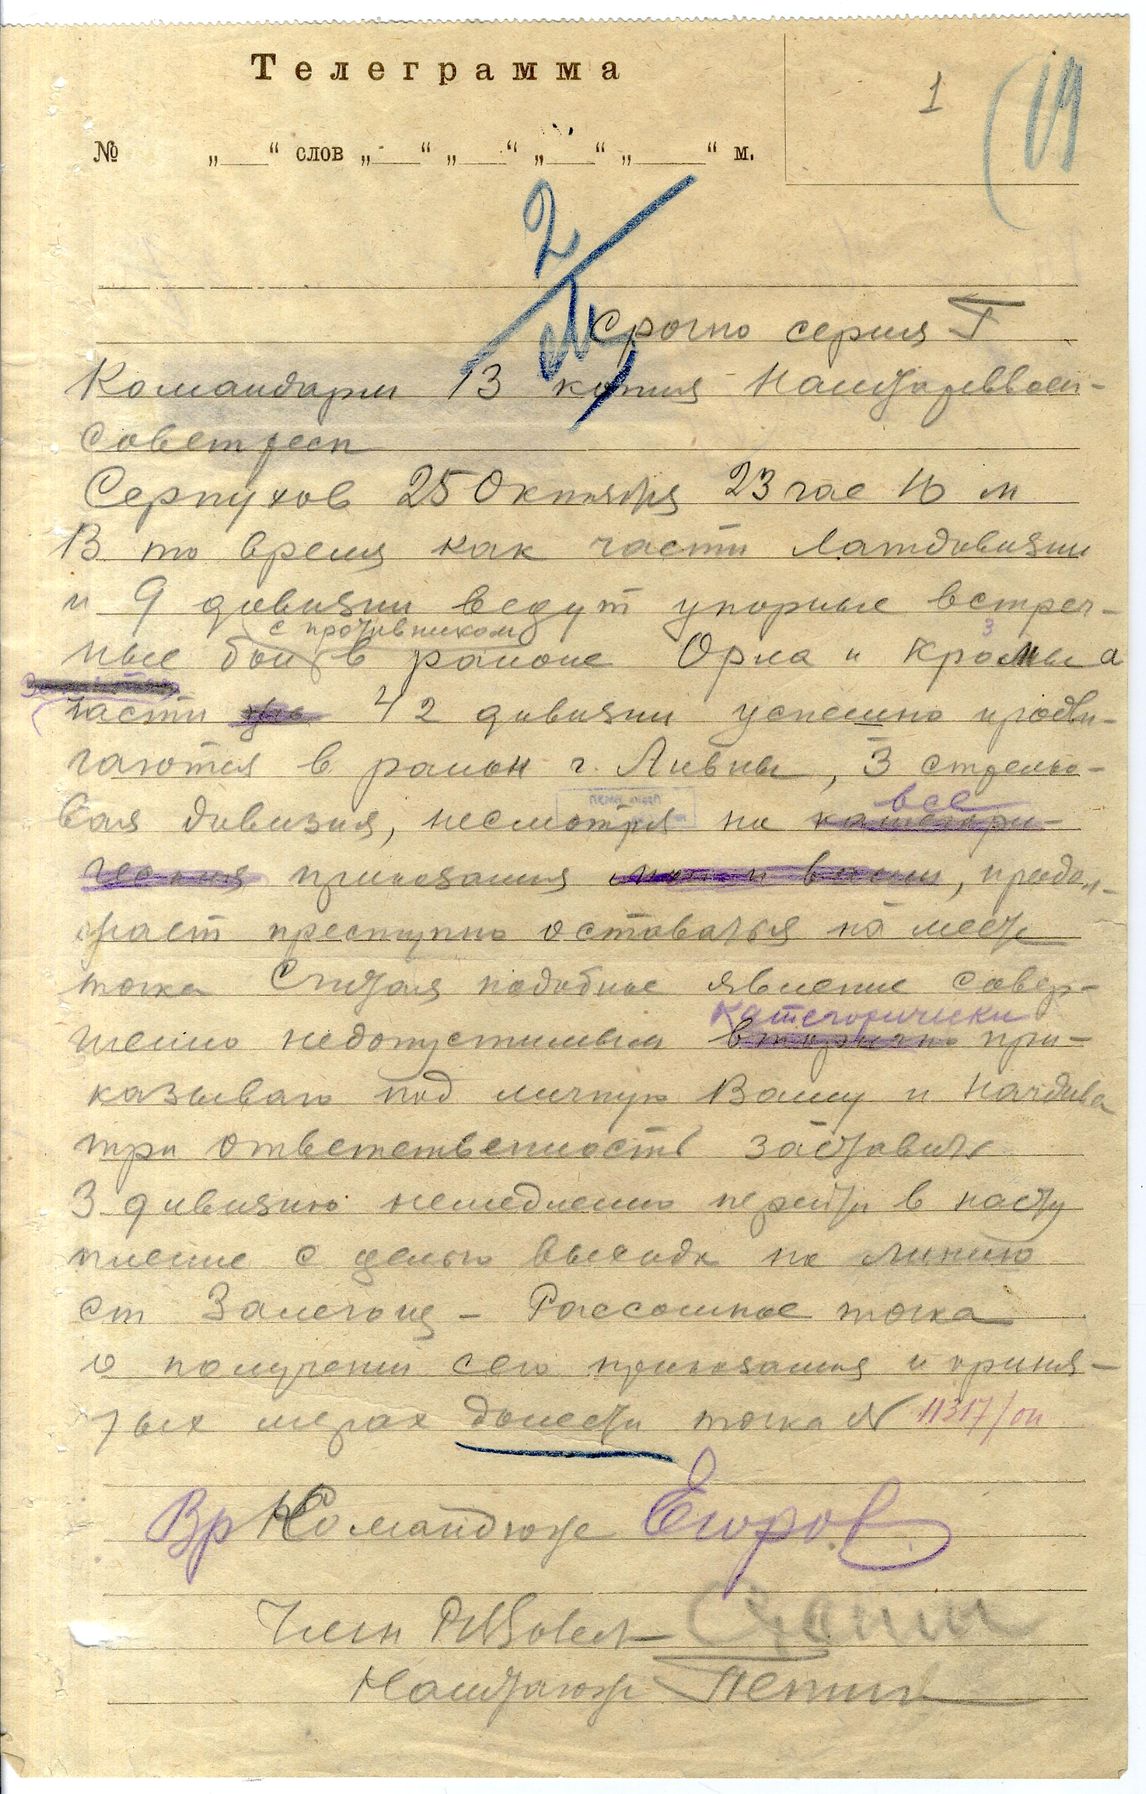 Телеграмма
1
№ „ “ слов „ “ „ “ „ “ „ “ м.
2
Срочно серия Г
Командарм 13 копия Наштареввоен-
советресп
Серпухов 25 Октября 23 час 10 м
В то время как части Латдивизии
и 9 дивизии ведут упорные встреч-
с противником
ные бои в районе Орла и Кромы а
части 42 дивизии успешно продви-
гаются в район г. Ливны, 3 стрелко-
все
вая дивизия, несмотря на категори-
ческия приказания, продол-
жает преступно оставаться на месте
точка Считая подобное явление совер-
категорически
шенно недопустимым вторично при-
казываю под личную Вашу и Начдива
три ответственность заставить
3 дивизию немедленно перейти в насту
пление с целью выхода на линию
ст Залегощ - Россошное точка
О получении сего приказания и приня-
тых мерах донести точка № 11317/оп
Вр Командюж Егоров
Член РВСовет Сталин
Наштаюж Петин